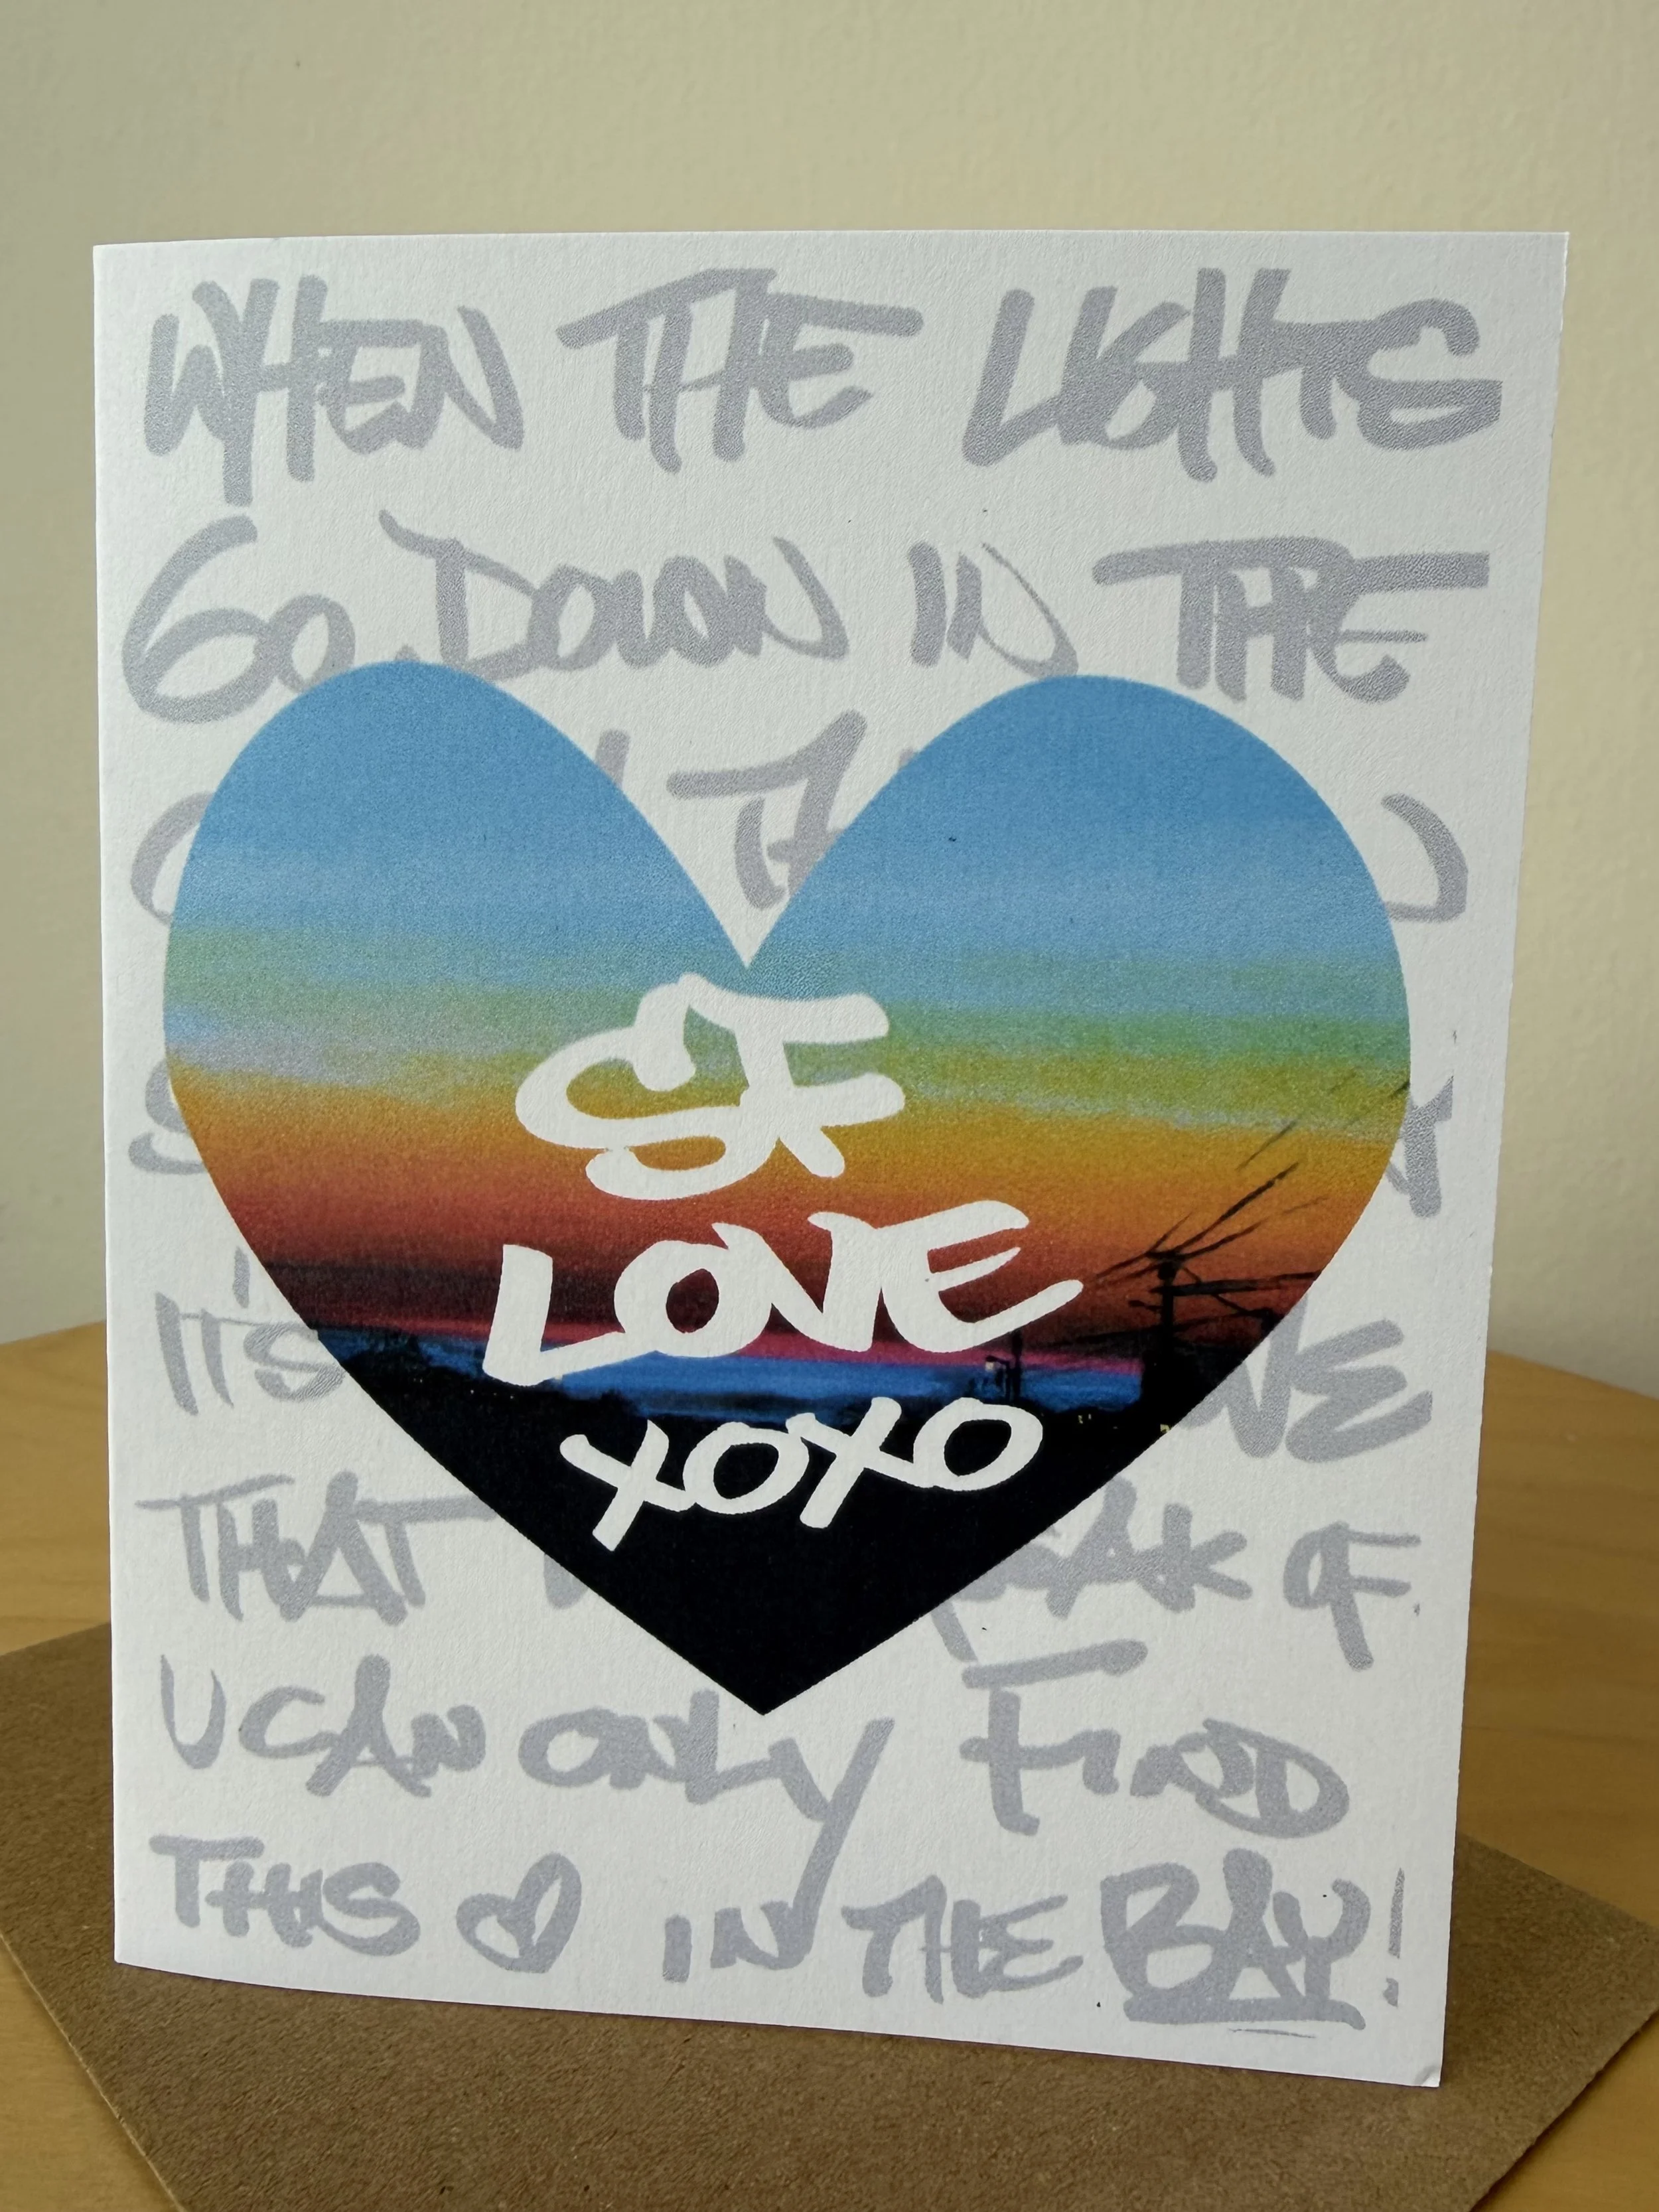 WHEN THE LIGHTS
GO DOWN IN THE
SF
LOVE
XOXO
IT'S
THAT OF
U CAN ONLY FIND
THIS IN THE BAY!